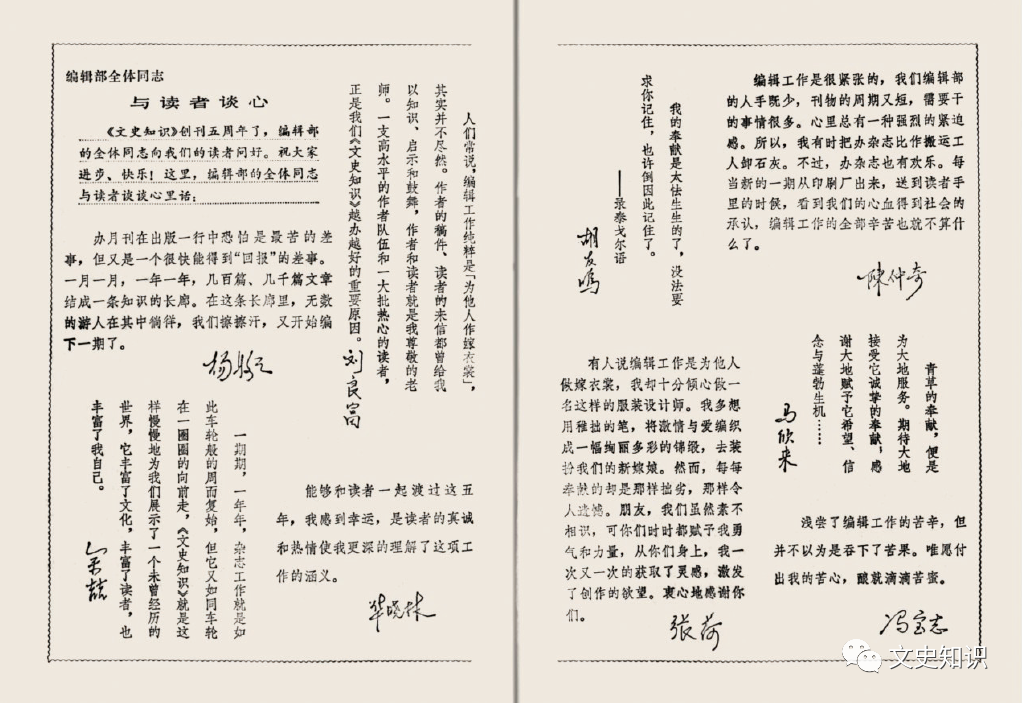 编辑部全体同志
与读者谈心
《文史知识》创刊五周年了，编辑部
的全体同志向我们的读者问好。祝大家
进步、快乐！这里，编辑部的全体同志
与读者谈谈心里话：
办月刊在出版一行中恐怕是最苦的差
事，但又是一个很快能得到“回报”的差事。
一月一月，一年一年，几百篇、几千篇文章
结成一条知识的长廊。在这条长廊里，无数
的游人在其中徜徉，我们擦擦汗，又开始编
下一期了。
人们常说，编辑工作纯粹是“为他人作嫁衣裳”，
其实并不尽然。作者的稿件、读者的来信都曾给我
以知识、启示和鼓舞，作者和读者就是我尊敬的老
师。一支高水平的作者队伍和一大批热心的读者，
正是我们《文史知识》越办越好的重要原因。
刘良富
一期期，一年年，杂志工作就是如
此车轮般的周而复始，但它又如同车轮
在一圈圈的向前走，《文史知识》就是这
样慢慢地为我们展示了一个未曾经历的
世界，它丰富了文化，丰富了读者，也
丰富了我自己。
能够和读者一起渡过这五
年，我感到幸运，是读者的真诚
和热情使我更深的理解了这项工
作的涵义。
华晓林
我的奉献是太怯生生的了，没法要
求你记住，也许倒因此记住了。
——录泰戈尔语
胡友鸣
编辑工作是很紧张的，我们编辑部
的人手既少，刊物的周期又短，需要干
的事情很多。心里总有一种强烈的紧迫
感。所以，我有时把办杂志比作搬运工
人卸石灰。不过，办杂志也有欢乐。每
当新的一期从印刷厂出来，送到读者手
里的时候，看到我们的心血得到社会的
承认，编辑工作的全部辛苦也就不算什
么了。
陈仲奇
有人说编辑工作是为他人
做嫁衣裳，我却十分倾心做一
名这样的服装设计师。我多想
用稚拙的笔，将激情与爱编织
成一幅绚丽多彩的锦缎，去装
扮我们的新嫁娘。然而，每每
奉献的却是那样拙劣，那样令
人遗憾。朋友，我们虽然素不
相识，可你们时时都赋予我勇
气和力量，从你们身上，我一
次又一次的获取了灵感，激发
了创作的欲望。衷心地感谢你
们。
张荷
青草的奉献，便是
为大地服务。期待大地
接受它诚挚的奉献，感
谢大地赋予它希望、信
念与蓬勃生机……
马欣来
浅尝了编辑工作的苦辛，但
并不以为是吞下了苦果。唯愿付
出我的苦心，酿就滴滴苦蜜。
冯宝志
文史知识